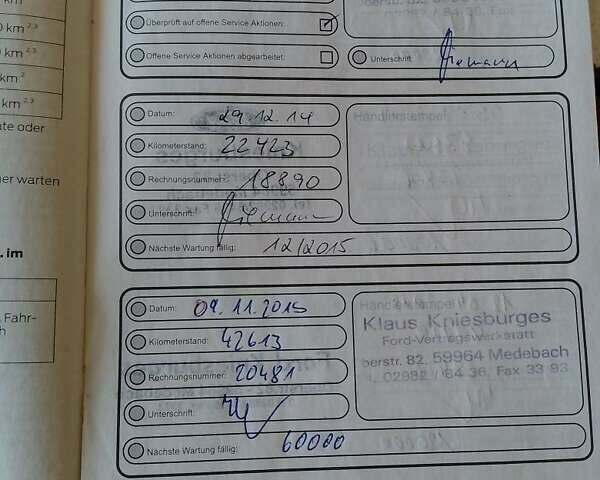 0 km 2,3
km 2,3
0 km 2,3
km 2
km 2,3
te oder
er warten
. im
Fahr-
h
Überprüft auf offene Service Aktionen:
Offene Service Aktionen abgearbeitet:
Unterschrift:
Datum: 29.12.14
Händlerstempel
Kilometerstand: 22423
Rechnungsnummer: 18890
Unterschrift:
Nächste Wartung fällig: 12/2015
Datum: 09.11.2015
Händlerstempel
Klaus Kniesburges
Ford-Vertragswerkstatt
berstr. 82. 59964 Medebach
. 02982 / 84 36, Fax 33 93
Kilometerstand: 42613
Rechnungsnummer: 20481
Unterschrift:
Nächste Wartung fällig: 60000